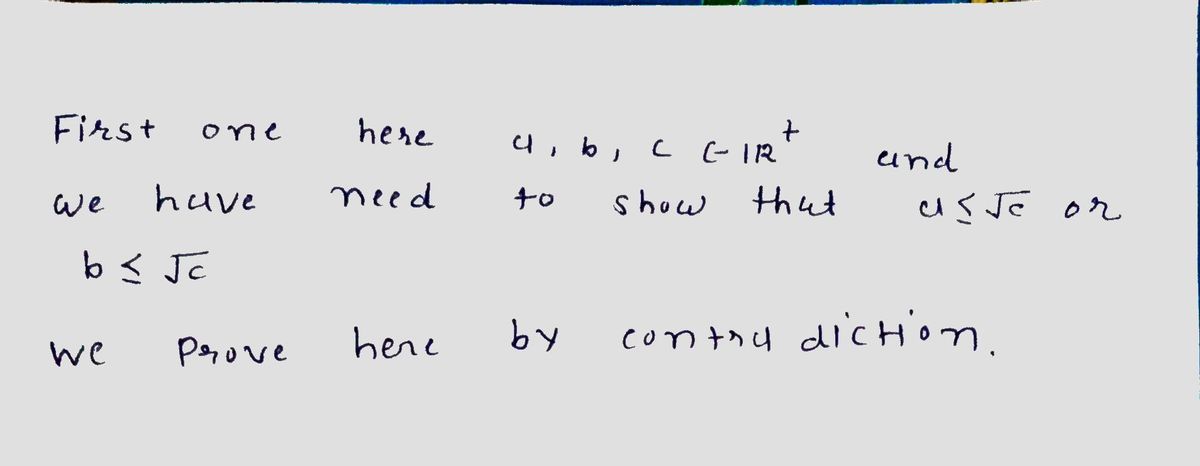 First one here a, b, c ∈ ℝ⁺ and
we have need to show that a ≤ √c or
b ≤ √c
we Prove here by contradiction.